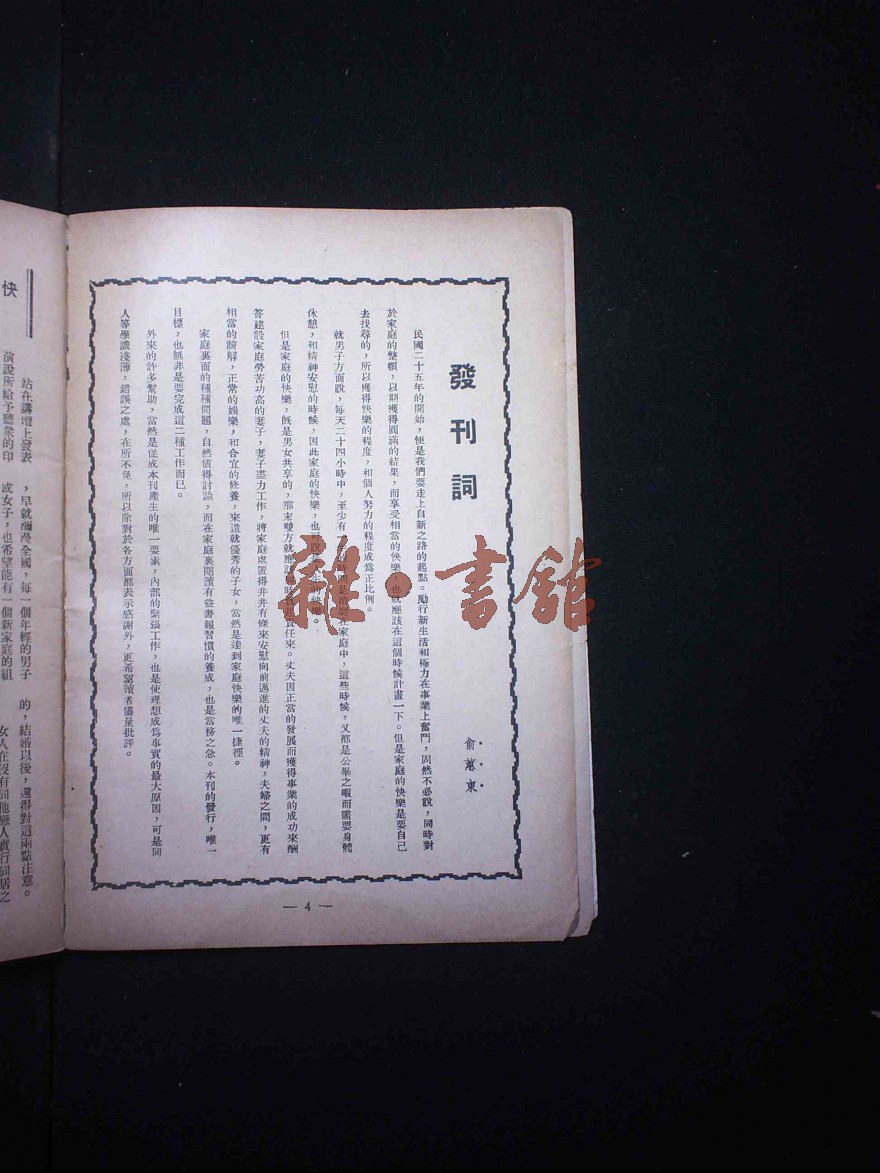 發刊詞
俞蕙東
民國二十五年的開始，便是我們要走上自新之路的起點。勵行新生活和極力在事業上奮鬥，固然不必說，同時對
於家庭的整頓，以期獲得圓滿的結果，而享受相當的快樂，也就應該在這個時候計畫一下。但是家庭的快樂是要自己
去找尋的，所以獲得快樂的程度，和個人努力的程度成為正比例。
就男子方面說，每天二十四小時中，至少有在家庭中，這些時候，又都是公畢之暇而需要身體
休憩，和精神安慰的時候，因此家庭的快樂，也可說的快樂。
但是家庭的快樂，既是男女共享的，那末雙方就應該責任來。丈夫因正當的發展而獲得事業的成功來酬
答建設家庭勞苦功高的妻子，妻子盡力工作，將家庭處置得井井有條來安慰向前邁進的丈夫的精神，夫婦之間，更有
相當的諒解，正常的娛樂，和合宜的修養，來造就優秀的子女，當然是達到家庭快樂的唯一捷徑。
家庭裏面的種種問題，自然值得討論，而在家庭裏閱讀有益書報習慣的養成，也是當務之急。本刊的發行，唯一
目標，也無非是要完成這二種工作而已。
外來的許多幫助，當然是促成本刊產生的唯一要素，內部的緊張工作，也是使理想成為事實的最大原因，可是同
人等學識淺薄，錯誤之處，在所不免，所以除對於各方面都表示感謝外，更希望讀者儘量批評。
— 4 —
快
站在講壇上發表
演說所給予聽眾的印
，早就瀰漫全國，每一個年輕的男子
或女子，也希望能有一個新家庭的組
的，結婚以後，還得對這兩點注意。
女人在沒有同他戀人實行同居之
雜·書館